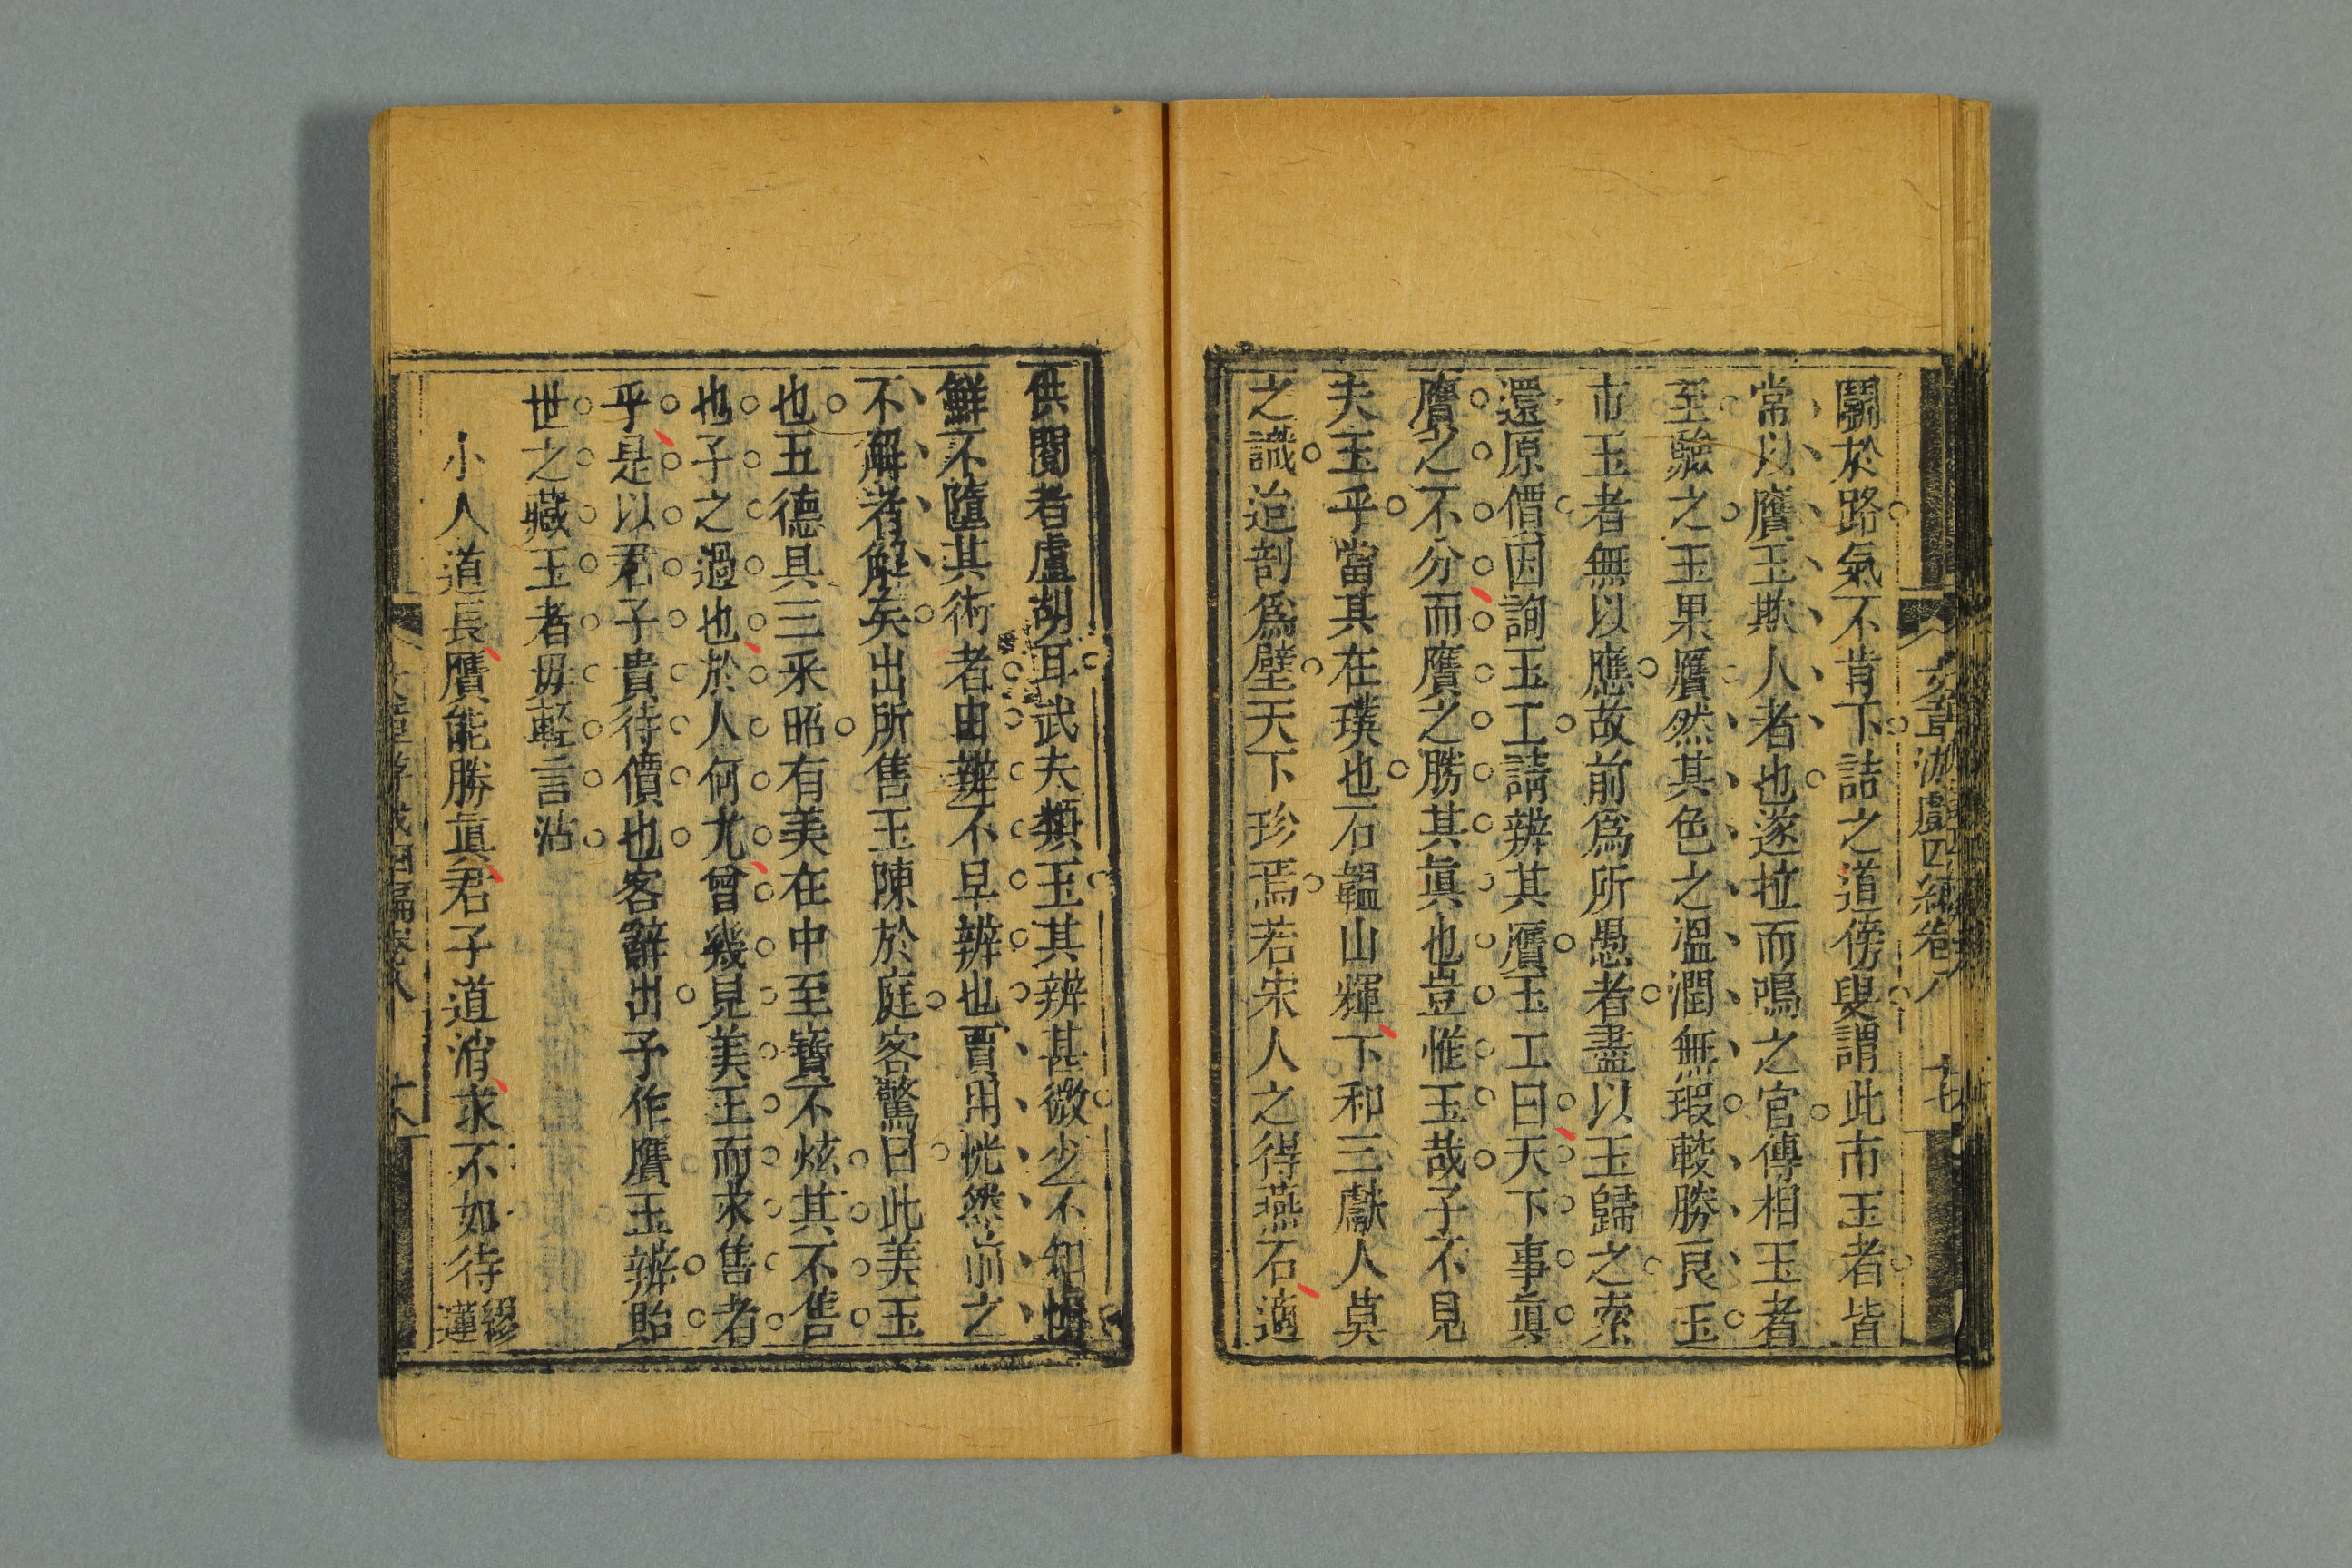 文章游戲四編卷八
七
鬬於路氣不肯下詰之道傍叟謂此市玉者皆
常以贋玉欺人者也遂拉而鳴之官傳相玉者
至驗之玉果贋然其色之溫潤無瑕較勝良玉
市玉者無以應故前爲所愚者盡以玉歸之索
還原價因詢玉工請辨其贋玉工曰天下事眞
贋之不分而贋之勝其眞也豈惟玉哉子不見
夫玉乎當其在璞也石韞山輝下和三獻人莫
之識迨剖爲壁天下珍焉若宋人之得燕石適
供閱者盧胡耳武夫類玉其辨甚微少不知
鮮不墮其術者由辨不早辨也賈用恍然前之
不解者解矣出所售玉陳於庭客驚曰此美玉
也五德具三采昭有美在中至寶不炫其不售
也子之過也於人何尤曾幾見美玉而求售者
乎是以君子貴待價也客辭出予作贋玉辨貽
世之藏玉者毋輕言沽
小人道長贋能勝眞君子道消求不如待繆蓮
文章游戲四編卷八